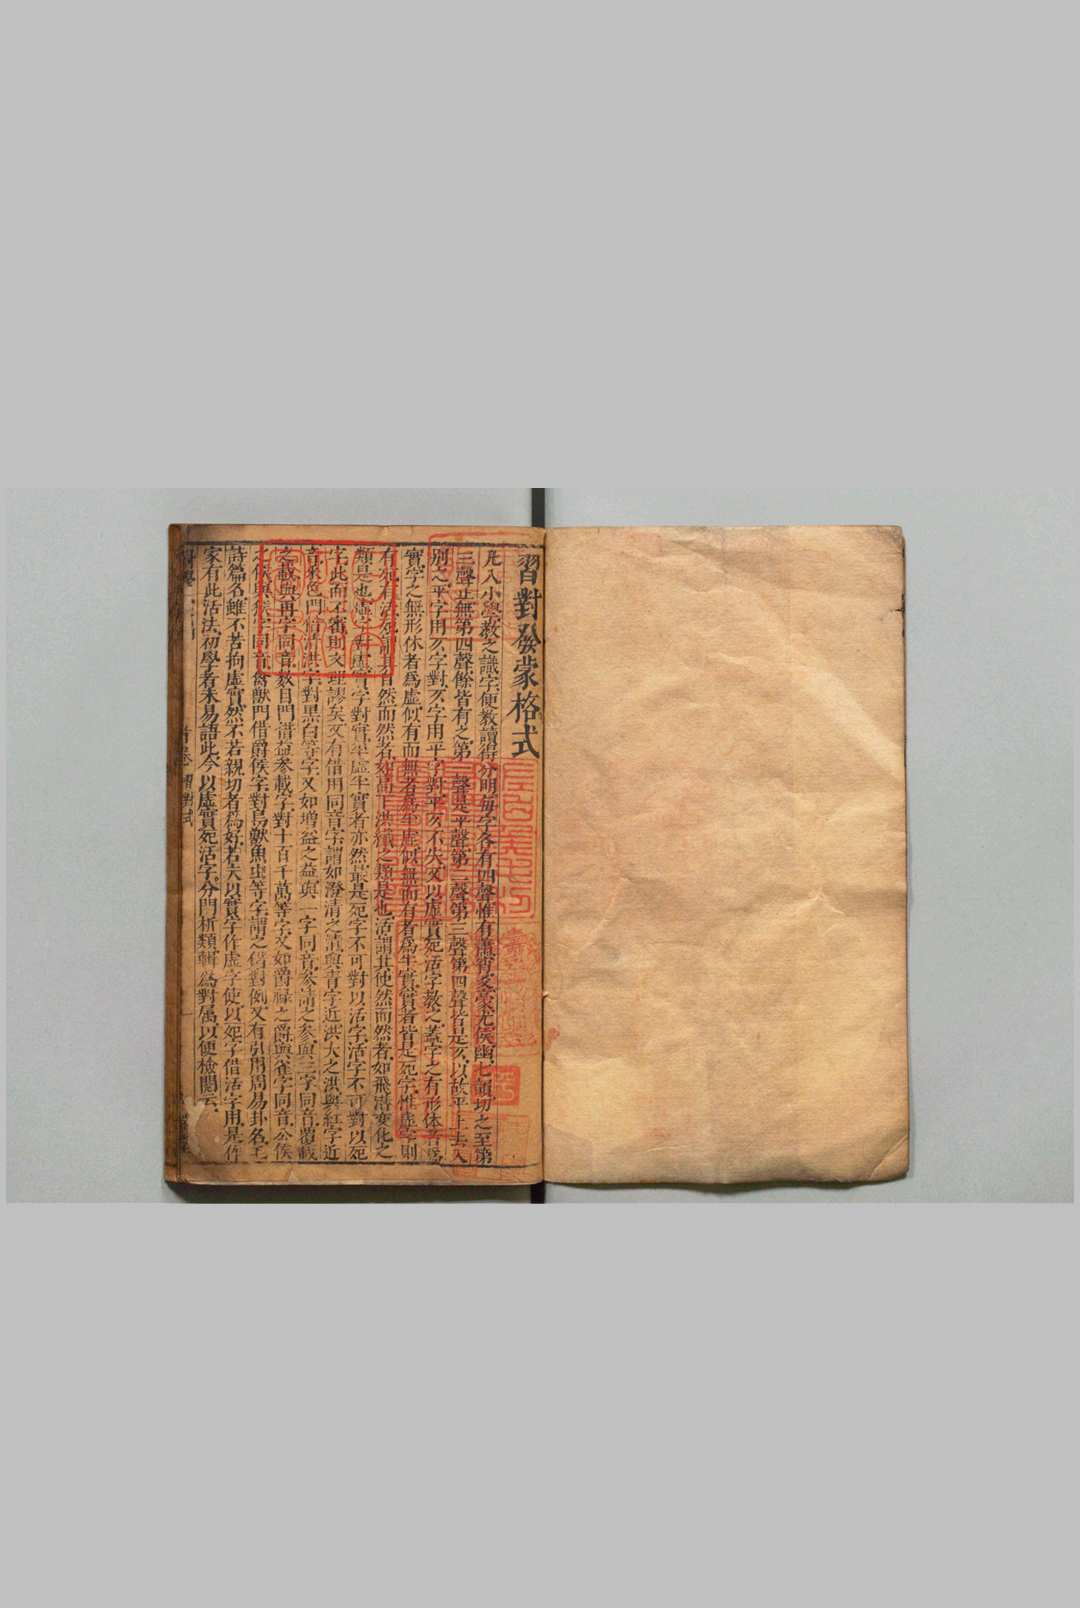 習對發蒙格式
凡入小學教之識字便教讀得分明每字各有四聲惟有蕭宵爻豪尤侯幽七韻切之至第
三聲止無第四聲餘皆有之第一聲是平聲第二聲第三聲第四聲皆是仄以故平上去入
別之平字用仄字對仄字用平字對平仄不失又以虛實死活字教之蓋字之有形体者爲
實字之無形体者爲虛似有而無者爲半虛似無而有者爲半實實者皆是死字惟虛字則
有死有活死謂其自然而然者如高下洪纖之類是也活謂其使然而然者如飛潛變化之
類是也虛字對虛實字對實半虛半實者亦然最是死字不可對以活字活字不可對以死
字此而不審則文理謬矣又有借用同音字謂如澄清之清與青字近洪大之洪與紅字近
音釆色門借清洪字對黒白等字又如增益之益與一字同音參請之參與三字同音覆載
之載與再字同音數目門借益參載字對十百千萬等字又如爵祿之爵與雀字同音公侯
之侯與猴字同音禽獸門借爵侯字對鳥獸魚虫等字謂之借對例又有引用周易卦名毛
詩篇名雖不苦拘虛實然不若親切者爲好若夫以實字作虛字使以死字借活字用是作
家有此活法初學者未易語此今以虛實死活字分門析類輯爲對属以便檢閱云
首卷 習對式